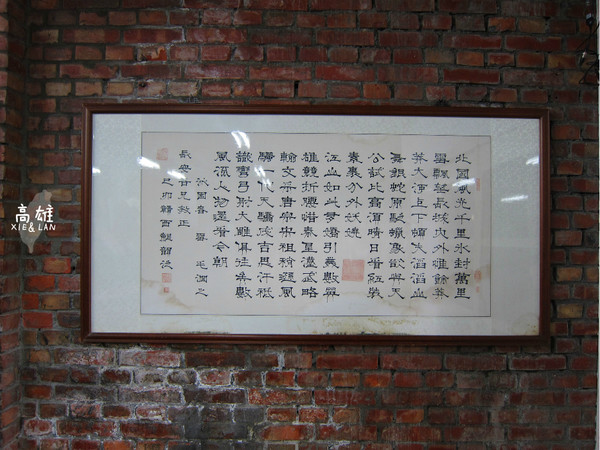 北國風光千里冰封萬里
雪飄望長城內外惟餘莽
莽大河上下頓失滔滔山
舞銀蛇原馳蠟象欲與天
公試比高須晴日看紅裝
素裹分外妖嬈
江山如此多嬌引無數英
雄競折腰惜秦皇漢武略
輸文采唐宗宋祖稍遜風
騷一代天驕成吉思汗祗
識彎弓射大雕俱往矣數
風流人物還看今朝
沁園春 雪 毛潤之
兄教正
己卯
高雄
XIE & LAN